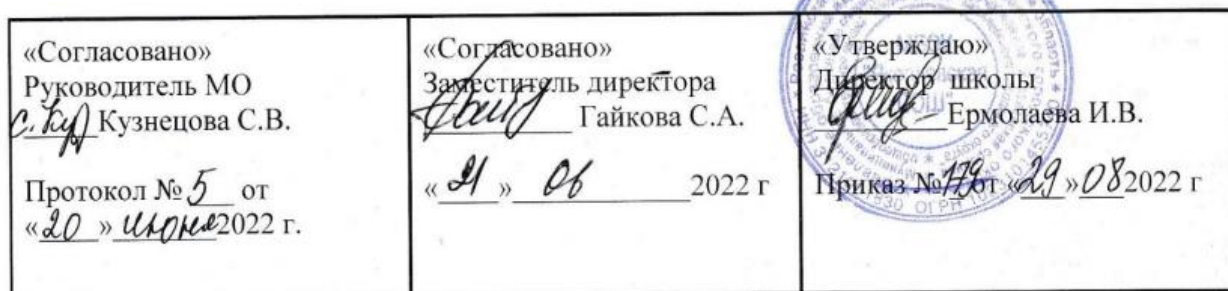 «Согласовано»
Руководитель МО
Кузнецова С.В.
Протокол № 5 от
«20» июня 2022 г.
«Согласовано»
Заместитель директора
Гайкова С.А.
«21» 06 2022 г
«Утверждаю»
Директор школы
Ермолаева И.В.
Приказ №179 от «29»08 2022 г